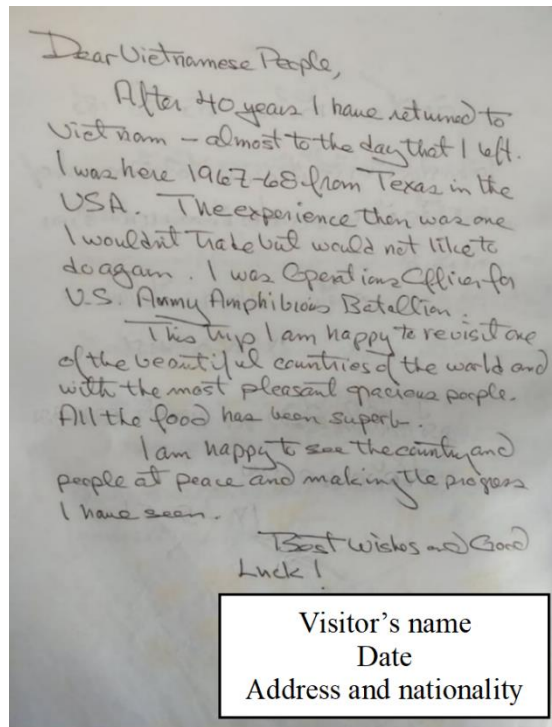 Dear Vietnamese People,
After 40 years I have returned to
Vietnam – almost to the day that I left.
I was here 1967-68 from Texas in the
USA. The experience then was one
I wouldn't trade but would not like to
do again. I was Operations Officer for
U.S. Army Amphibious Batallion.
This trip I am happy to revisit one
of the beautiful countries of the world and
with the most pleasant gracious people.
All the food has been superb.
I am happy to see the country and
people at peace and making the progress
I have seen.
Best Wishes and Good
Luck!
Visitor's name
Date
Address and nationality